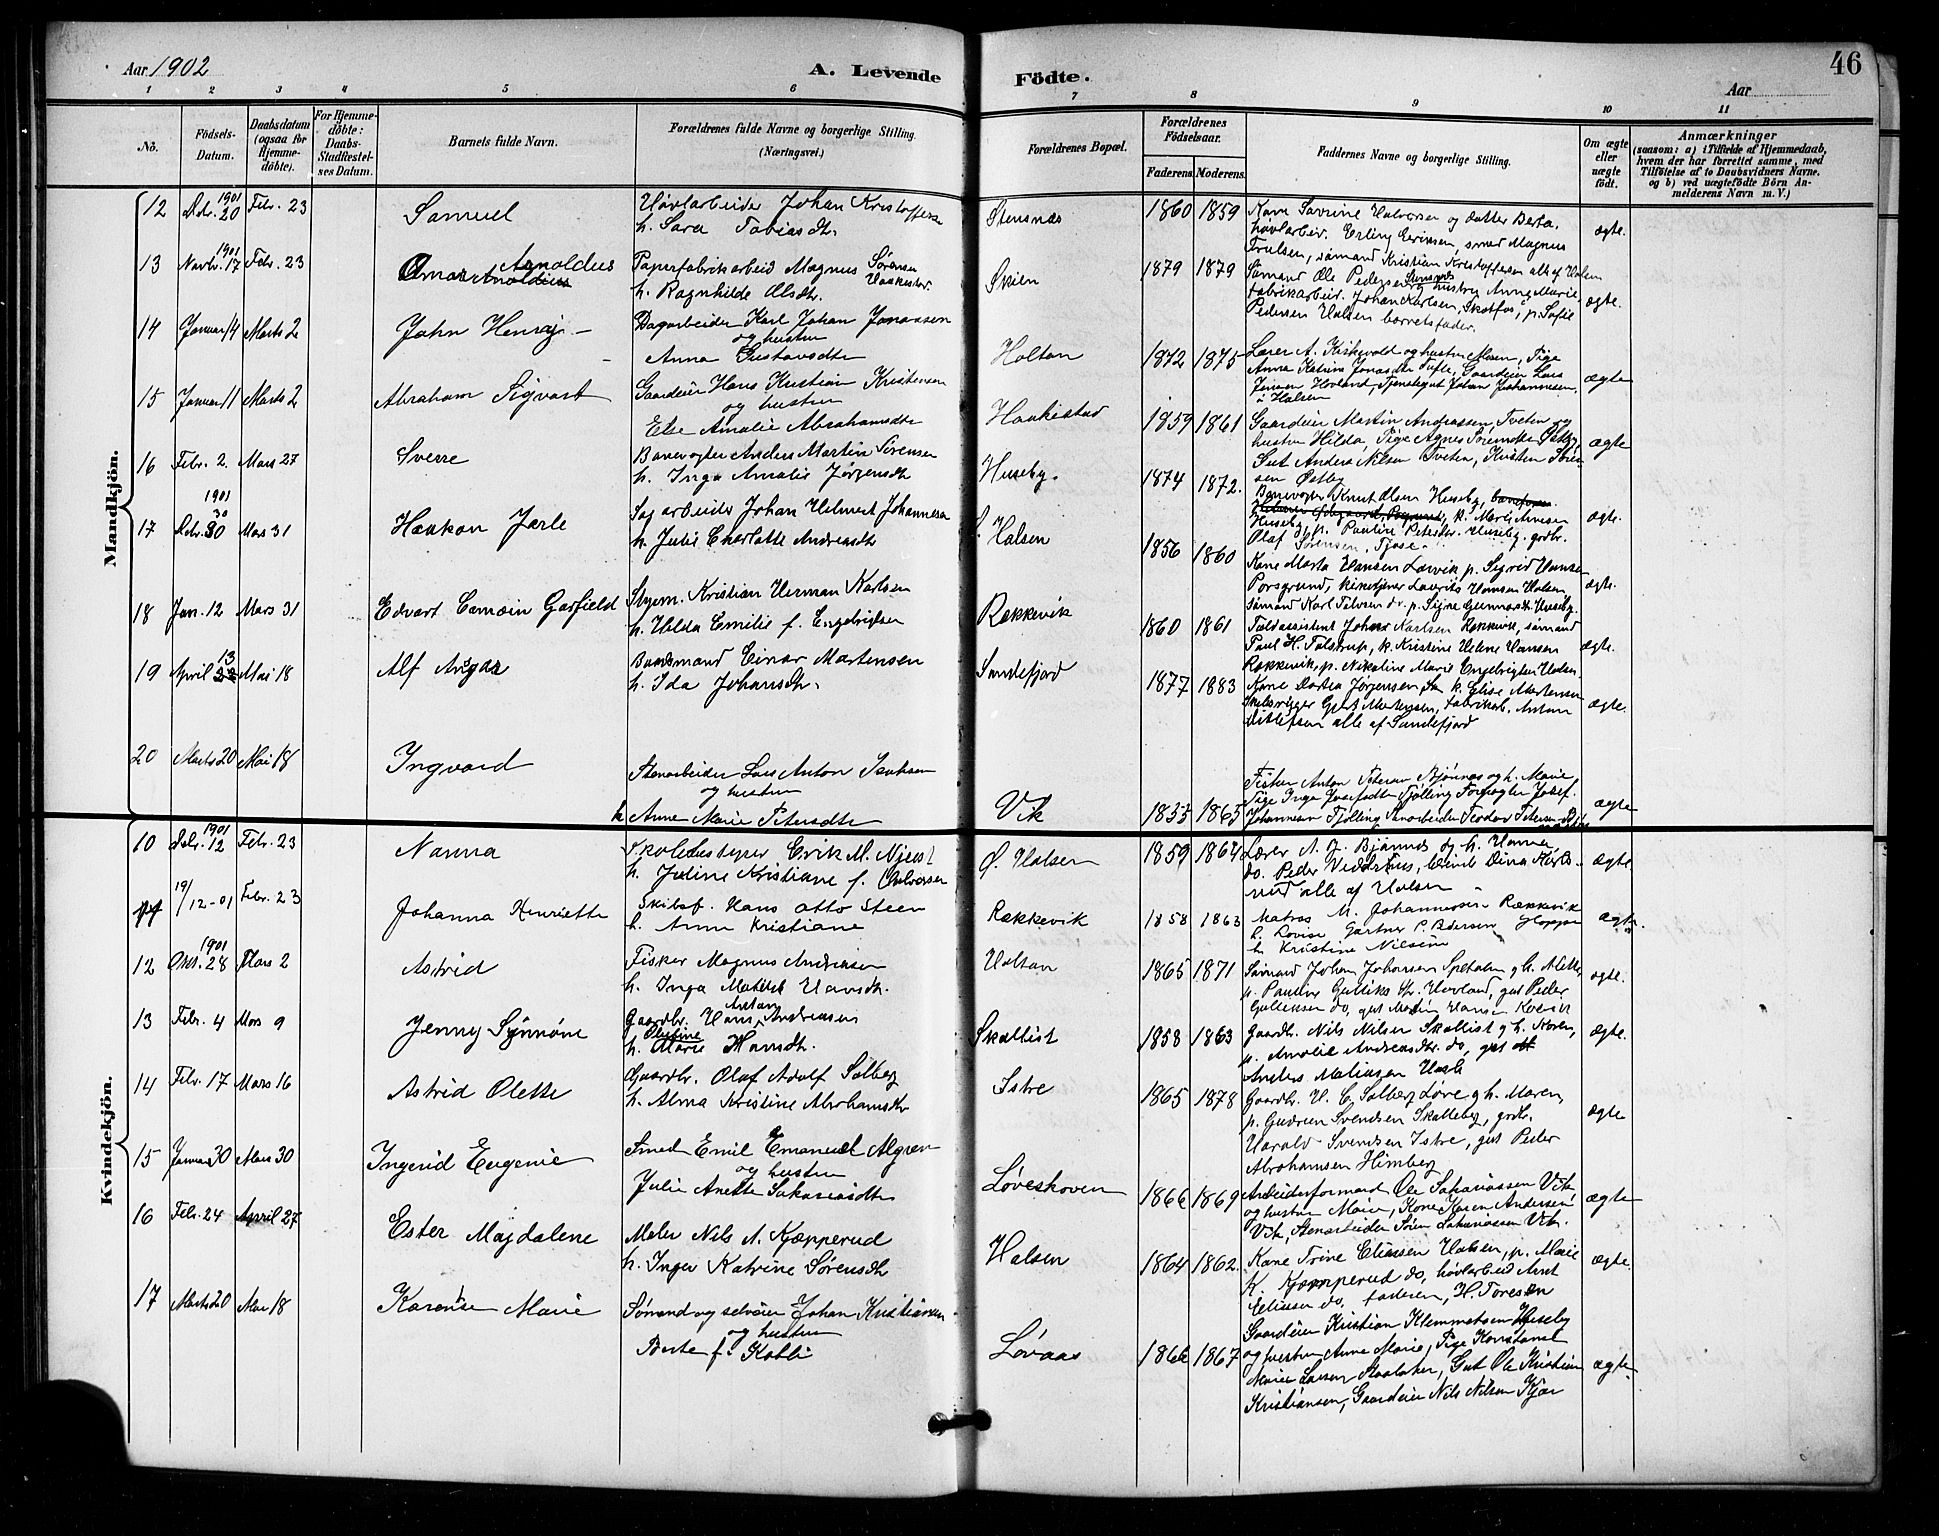 Aar 1902
A. Levende
Födte.
46
Aar
1 2 3 4 5 6 7 8 9 10 11
No.
Födsels-Datum.
Daabsdatum (ogsaa for Hjemme-döbte).
For Hjemme-döbte: Daabs-Stadfæstel-ses Datum.
Barnets fulde Navn.
Forældrenes fulde Navne og borgerlige Stilling.
(Næringsvei.)
Forældrenes Bopæl.
Forældrenes Födselsaar.
Faderens. Moderens.
Faddernes Navne og borgerlige Stilling.
Om ægte eller uægte födt.
Anmærkninger
(saasom: a) i Tilfælde af Hjemmedaab,
hvem der har forrettet samme, med
Tilföielse af to Daabsvidners Navne.
og b) ved uægtefödte Börn An-
melderens Navn m. V.)
Mandkjön.
12 Dcbr. 1901 20 Febr. 23 Samuel
Høvlarbeider Johan Kristoffersen
h. Sara Tobiasdtr.
Stensnæs 1860 1859
Kone Severine Halvorsen og datter Berta,
høvlarbeid. Erling Eriksen, smed Magnus
Trulsen, sømand Kristian Kristoffersen alle af Halsen
ægte.
13 Novbr. 1901 17 Febr. 23 Arnoldus
Papirfabrikarbeid Magnus Sørensen Haakestad
h. Ragnhilde Olsdtr.
Skien 1879 1879
Sømand Ole Pedersen Stensnæs og hustru Anne Marie,
fabrikarbeid. Johan Karlsen, Skotfos, p. Sofie
Pedersen Halsen barnetsfader.
ægte.
14 Januar 14 Marts 2 John Henry
Dagarbeider Karl Johan Jonassen
og hustru
Anna Gustavsdtr
Holtan 1872 1875
Lærer A. Kirkevold og hustru Maren, Pige
Anna Katrine Jonasdtr Tufte, Gaardeier Lars
Jensen Hovland, Tjenstegut Johan Johannesen
i Halsen
ægte
15 Januar 11 Marts 2 Abraham Sigvart
Gaardeier Hans Kristian Kristensen
og hustru
Else Amalie Abrahamsdtr
Haakestad 1859 1861
Gaardeier Martin Andreassen, Tveten og
hustru Hilda, Pige Agnes Sørensdtr Østby,
Gut Anders Nilsen Tveten, Kristen Søren-
sen Østby
ægte
16 Febr. 2. Mars 27 Sverre
Banevogter Anders Martin Sørensen
h. Inga Amalie Jørgensdtr
Huseby. 1874 1872.
Banevogter Knut Olsen Huseby,
k. Marie Arnesen
Huseby, p. Pauline Petersdtr. Huseby, grdbr.
Olaf Sørensen, Tjøse
ægte.
17 Dcbr. 1901 30 Mars 31 Haakon Jarle
Sagarbeider Johan Helmert Johannesen
h. Julie Charlotte Andreasdtr
Halsen 1856 1860
Kone Marta Hansen Larvik p. Sigrid Hansen
Porsgrund, kirketjener Laurits Hansen Halsen
sømand Karl p. Signe Gunnarsdtr. Huseby.
ægte.
18 Jan. 12 Mars 31 Edvart Camoin Garfield
Styrm. Kristian Herman Karlsen
h. Hilda Emilie f. Engebrigtsen
Rekkevik 1860 1861
Toldassistent Johan Karlsen Rekkevik, sømand
Paul H. Tolstrup, k. Kristine Helene Hansen
Rekkevik, p. Nikoline Marie Engebrigtsen Halsen.
ægte.
19 April 13 Mai 18 Alf Ansgar
Baadsmand Einar Martensen
h. Ida Johansdtr.
Sandefjord 1877 1883
Kone Dortea Jørgensen, k. Elise Martensen
skibsrigger Gert Martensen, fabrikarb. Anton
Ditlefsen alle af Sandefjord
ægte.
20 Marts 20 Mai 18 Ingvard
Stenarbeider Lars Anton Isaksen
og hustru
Anne Marie Petersdtr
Vik 1833 1865
Fisker Anton Petersen Bjønnes og h. Marie,
Pige Inga Josefsdtr Tjølling Forpagter Josef
Johannesen Tjølling Stenarbeider Teodor Petersen
ægte
Kvindekjön.
10 Dcbr. 1901 12 Febr. 23 Nanna
Skolebestyrer Erik M. Njerst
h. Juline Kristiane f. Halvorsen
Ø. Halsen 1859 1864
Lærer A. J. Bjønnes og h. Hanna,
do. Peder Dina
alle af Halsen
ægte.
11 19/12-01 Febr. 23 Johanna Henriette
Skibsf. Hans Otto Steen
h. Anne Kristiane
Rækkevik 1858 1863
Matros M. Johannessen Rækkevik
h. Lovise Gartner P. Pedersen
h. Kristine Nilsen
ægte.
12 Okt. 1901 28 Mars 2 Astrid
Fisker Magnus Andreasen
h. Inga Matilde Hansdtr.
Holtan 1865 1871
Sømand Johan Johansen Spetalen og h. Mette,
p. Pauline Gulliksdtr. Hovland, gut Peder
Gulliksen do, gut Martin Hansen
ægte.
13 Febr. 4 Mars 9 Jenny Synnøve
Gaardbr. Hans Anton Andreasen
h. Olustine Marie Hansdtr.
Skallist 1858 1863
Gaardbr. Nils Nilsen Skallist og h. Karen,
p. Amalie Andreasdtr. do, gut
Anders Matisen Hasle
ægte.
14 Febr. 17 Mars 16 Astrid Olette
Gaardbr. Olaf Adolf Solberg
h. Alma Kristine Abrahamsdtr
Istre 1865 1878
Gaardbr. H. C. Solberg Løve og h. Maren,
p. Gudrun Svendsen Skalleberg, grdbr.
Harald Svendsen Istre, gut Peder
Abrahamsen Himberg
ægte
15 Januar 30 Mars 30 Ingerid Eugenie
Smed Emil Emanuel Algren
og hustru
Julie Anette Sakariasdtr
Løveskoven 1866 1869
Arbeiderformand Ole Sakariassen Vik
og hustru Marie, Kone Karen Andersen
Vik, Stenarbeider Søren Sakariassen Vik.
ægte
16 Febr. 24 April 27 Ester Magdalene
Maler Nils A. Kjæpperud
h. Inger Katrine Sørensdtr
Halsen 1864 1862.
Kone Trine Eliassen Halsen, p. Marie
K. Kjæpperud do, høvlarbeid Arnt
Eliasen do, faderen, H. Toresen
ægte.
17 Marts 20 Mai 18 Karense Marie
Sømand og selveier Johan Kristiansen
og hustru
Berte f. Kobli
Løvaas 1866 1867
Gaardeier Kristian Klemmetsen Huseby
og hustru Anne Marie, Pige Konstanse
Marie Larsen Staalaker, Gut Ole Kristian
Kristiansen, Gaardeier Nils Nilsen Kjær
ægte.